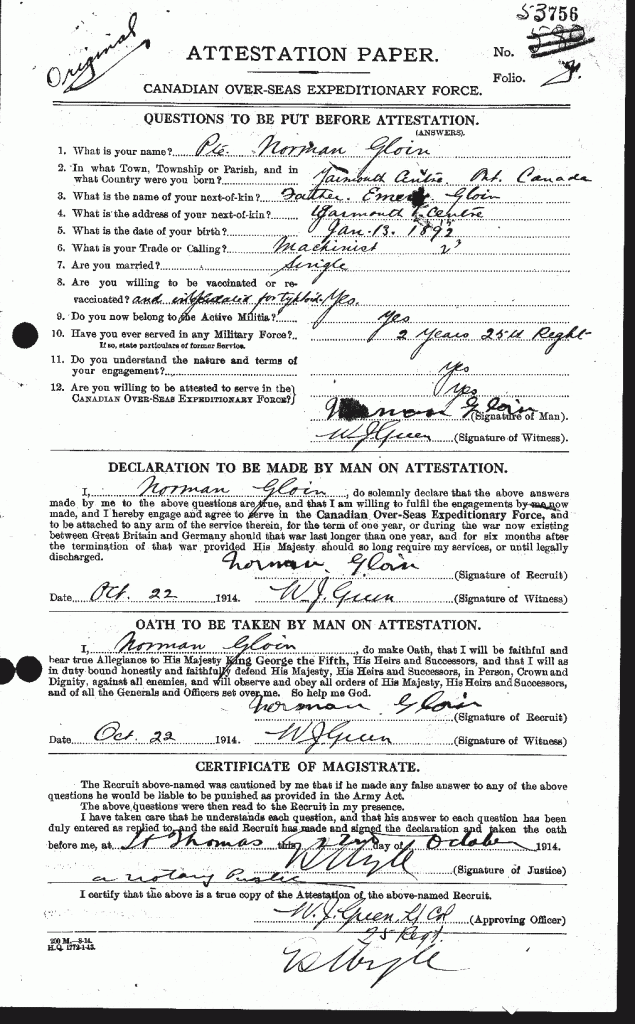 53756
Original
ATTESTATION PAPER.
No. 
Folio.
CANADIAN OVER-SEAS EXPEDITIONARY FORCE.
QUESTIONS TO BE PUT BEFORE ATTESTATION.
(ANSWERS.)
1. What is your name? Pte. Norman Gloin
2. In what Town, Township or Parish, and in
what Country were you born? Yarmouth Centre, Ont. Canada
3. What is the name of your next-of-kin? Father. Gloin
4. What is the address of your next-of-kin? Yarmouth Centre
5. What is the date of your birth? Jan. 13. 1892
6. What is your Trade or Calling? Machinist
7. Are you married? Single
8. Are you willing to be vaccinated or re-
vaccinated? and Yes
9. Do you now belong to the Active Militia? Yes
10. Have you ever served in any Military Force? 2 Years 25th Regt
If so, state particulars of former Service.
11. Do you understand the nature and terms of
your engagement? yes
12. Are you willing to be attested to serve in the Yes
CANADIAN OVER-SEAS EXPEDITIONARY FORCE?
Norman Gloin (Signature of Man).
W J Green (Signature of Witness).
DECLARATION TO BE MADE BY MAN ON ATTESTATION.
I, Norman Gloin, do solemnly declare that the above answers
made by me to the above questions are true, and that I am willing to fulfil the engagements by me now
made, and I hereby engage and agree to serve in the Canadian Over-Seas Expeditionary Force, and
to be attached to any arm of the service therein, for the term of one year, or during the war now existing
between Great Britain and Germany should that war last longer than one year, and for six months after
the termination of that war provided His Majesty should so long require my services, or until legally
discharged.
Norman Gloin (Signature of Recruit)
Date Oct. 22 1914. W. J. Green (Signature of Witness)
OATH TO BE TAKEN BY MAN ON ATTESTATION.
I, Norman Gloin, do make Oath, that I will be faithful and
bear true Allegiance to His Majesty King George the Fifth, His Heirs and Successors, and that I will as
in duty bound honestly and faithfully defend His Majesty, His Heirs and Successors, in Person, Crown and
Dignity, against all enemies, and will observe and obey all orders of His Majesty, His Heirs and Successors,
and of all the Generals and Officers set over me. So help me God.
Norman Gloin (Signature of Recruit)
Date Oct. 22 1914. W J Green (Signature of Witness)
CERTIFICATE OF MAGISTRATE.
The Recruit above-named was cautioned by me that if he made any false answer to any of the above
questions he would be liable to be punished as provided in the Army Act.
The above questions were then read to the Recruit in my presence.
I have taken care that he understands each question, and that his answer to each question has been
duly entered as replied to, and the said Recruit has made and signed the declaration and taken the oath
before me, at St Thomas this 22nd day of October 1914.
(Signature of Justice)
a Notary Public
I certify that the above is a true copy of the Attestation of the above-named Recruit.
W. J. Green, Lt Col (Approving Officer)
25 Regt.
200 M.—8-14.
H.Q. 1772-1-13.